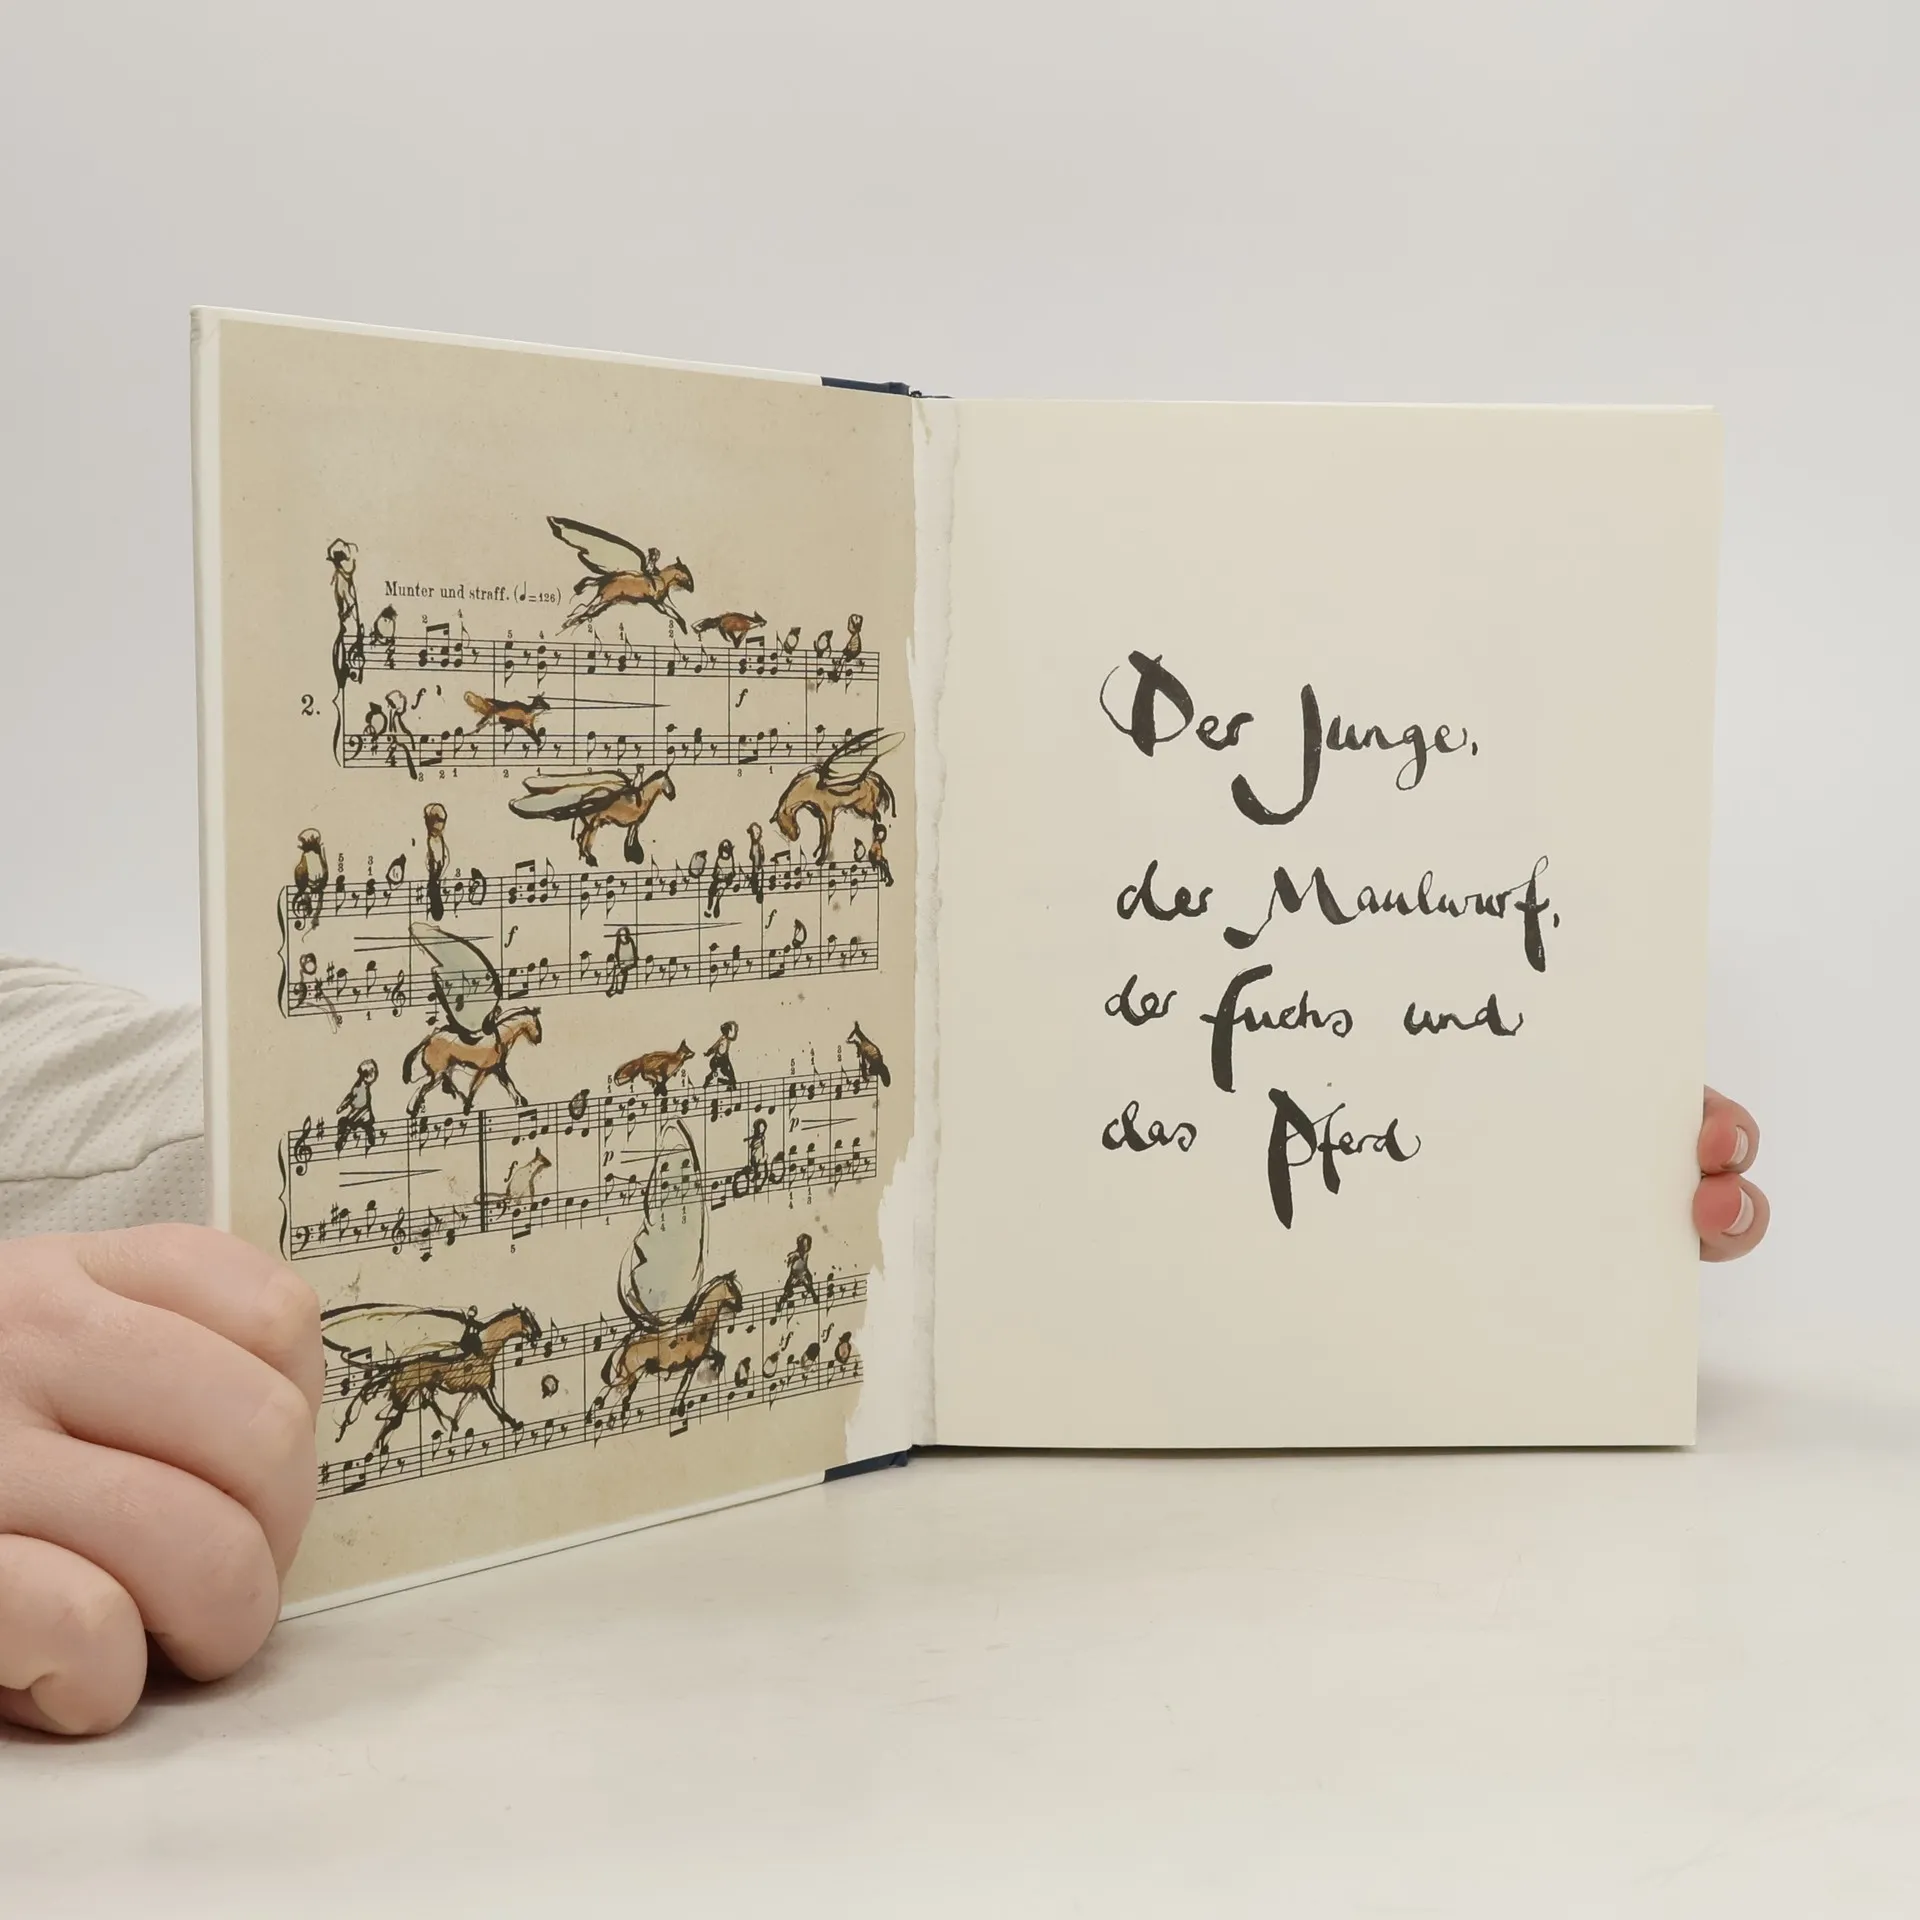 Munter und straff. (♩=126)
2.
Der Junge,
der Maulwurf,
der Fuchs und
das Pferd